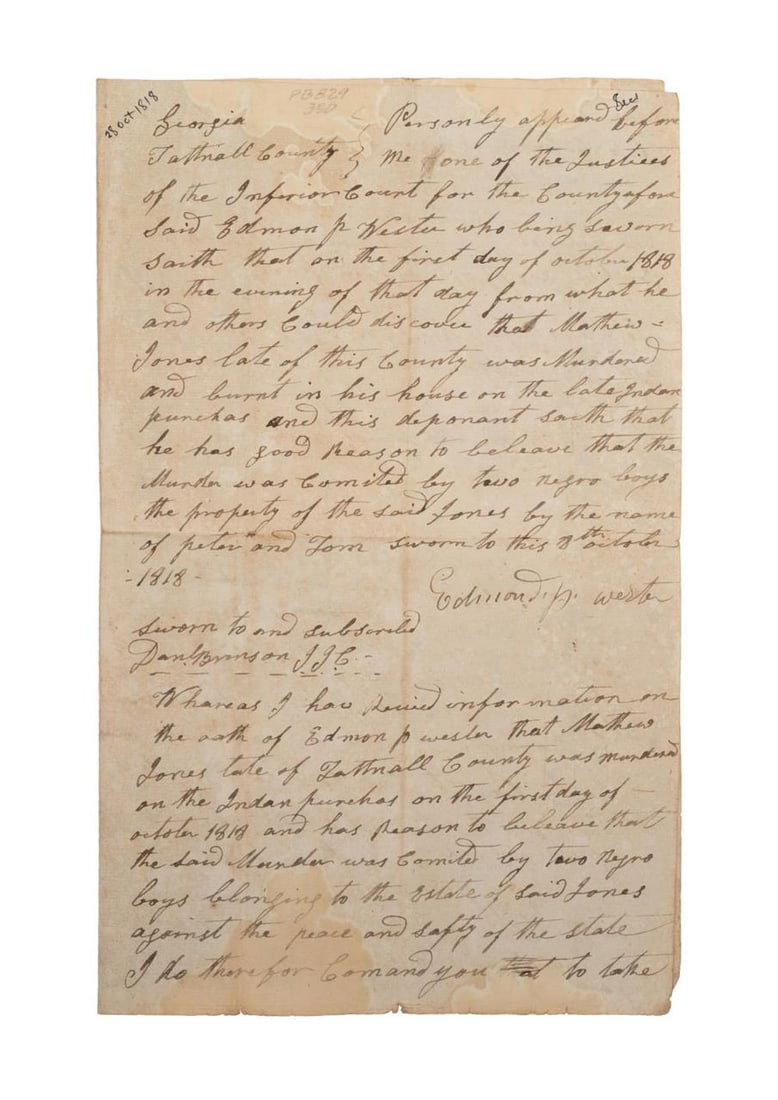 28 Oct 1818
PB829
350
Georgia } Personly appeard before
Tattnall County } me one of the Justices
of the Inferior Court for the County afore
said Edmon p Wester who being sworn
saith that on the first day of october 1818
in the evening of that day from what he
and others Could discover that Mathew =
Jones late of this County was Murdered
and burnt in his house on the late Indan
purchas and this deponant saith that
he has good Reason to beleave that the
Murder was Comited by two negro boys
the property of the said Jones by the name
of peter and Tom sworn to this 8th octobr
- 1818 -
Edmond p. wester
sworn to and subscribed
Danl Brinson J J C. -
Whareas I hav Reciied information on
the oath of Edmon p wester that Mathew
Jones late of Tattnall County was murdered
on the Indan purchas on the first day of -
october 1818 and has Reason to beleave that
the said Murder was Comited by two negro
boys blonging to the Estate of said Jones
against the peace and safty of the state
I do therefor Comand you to take